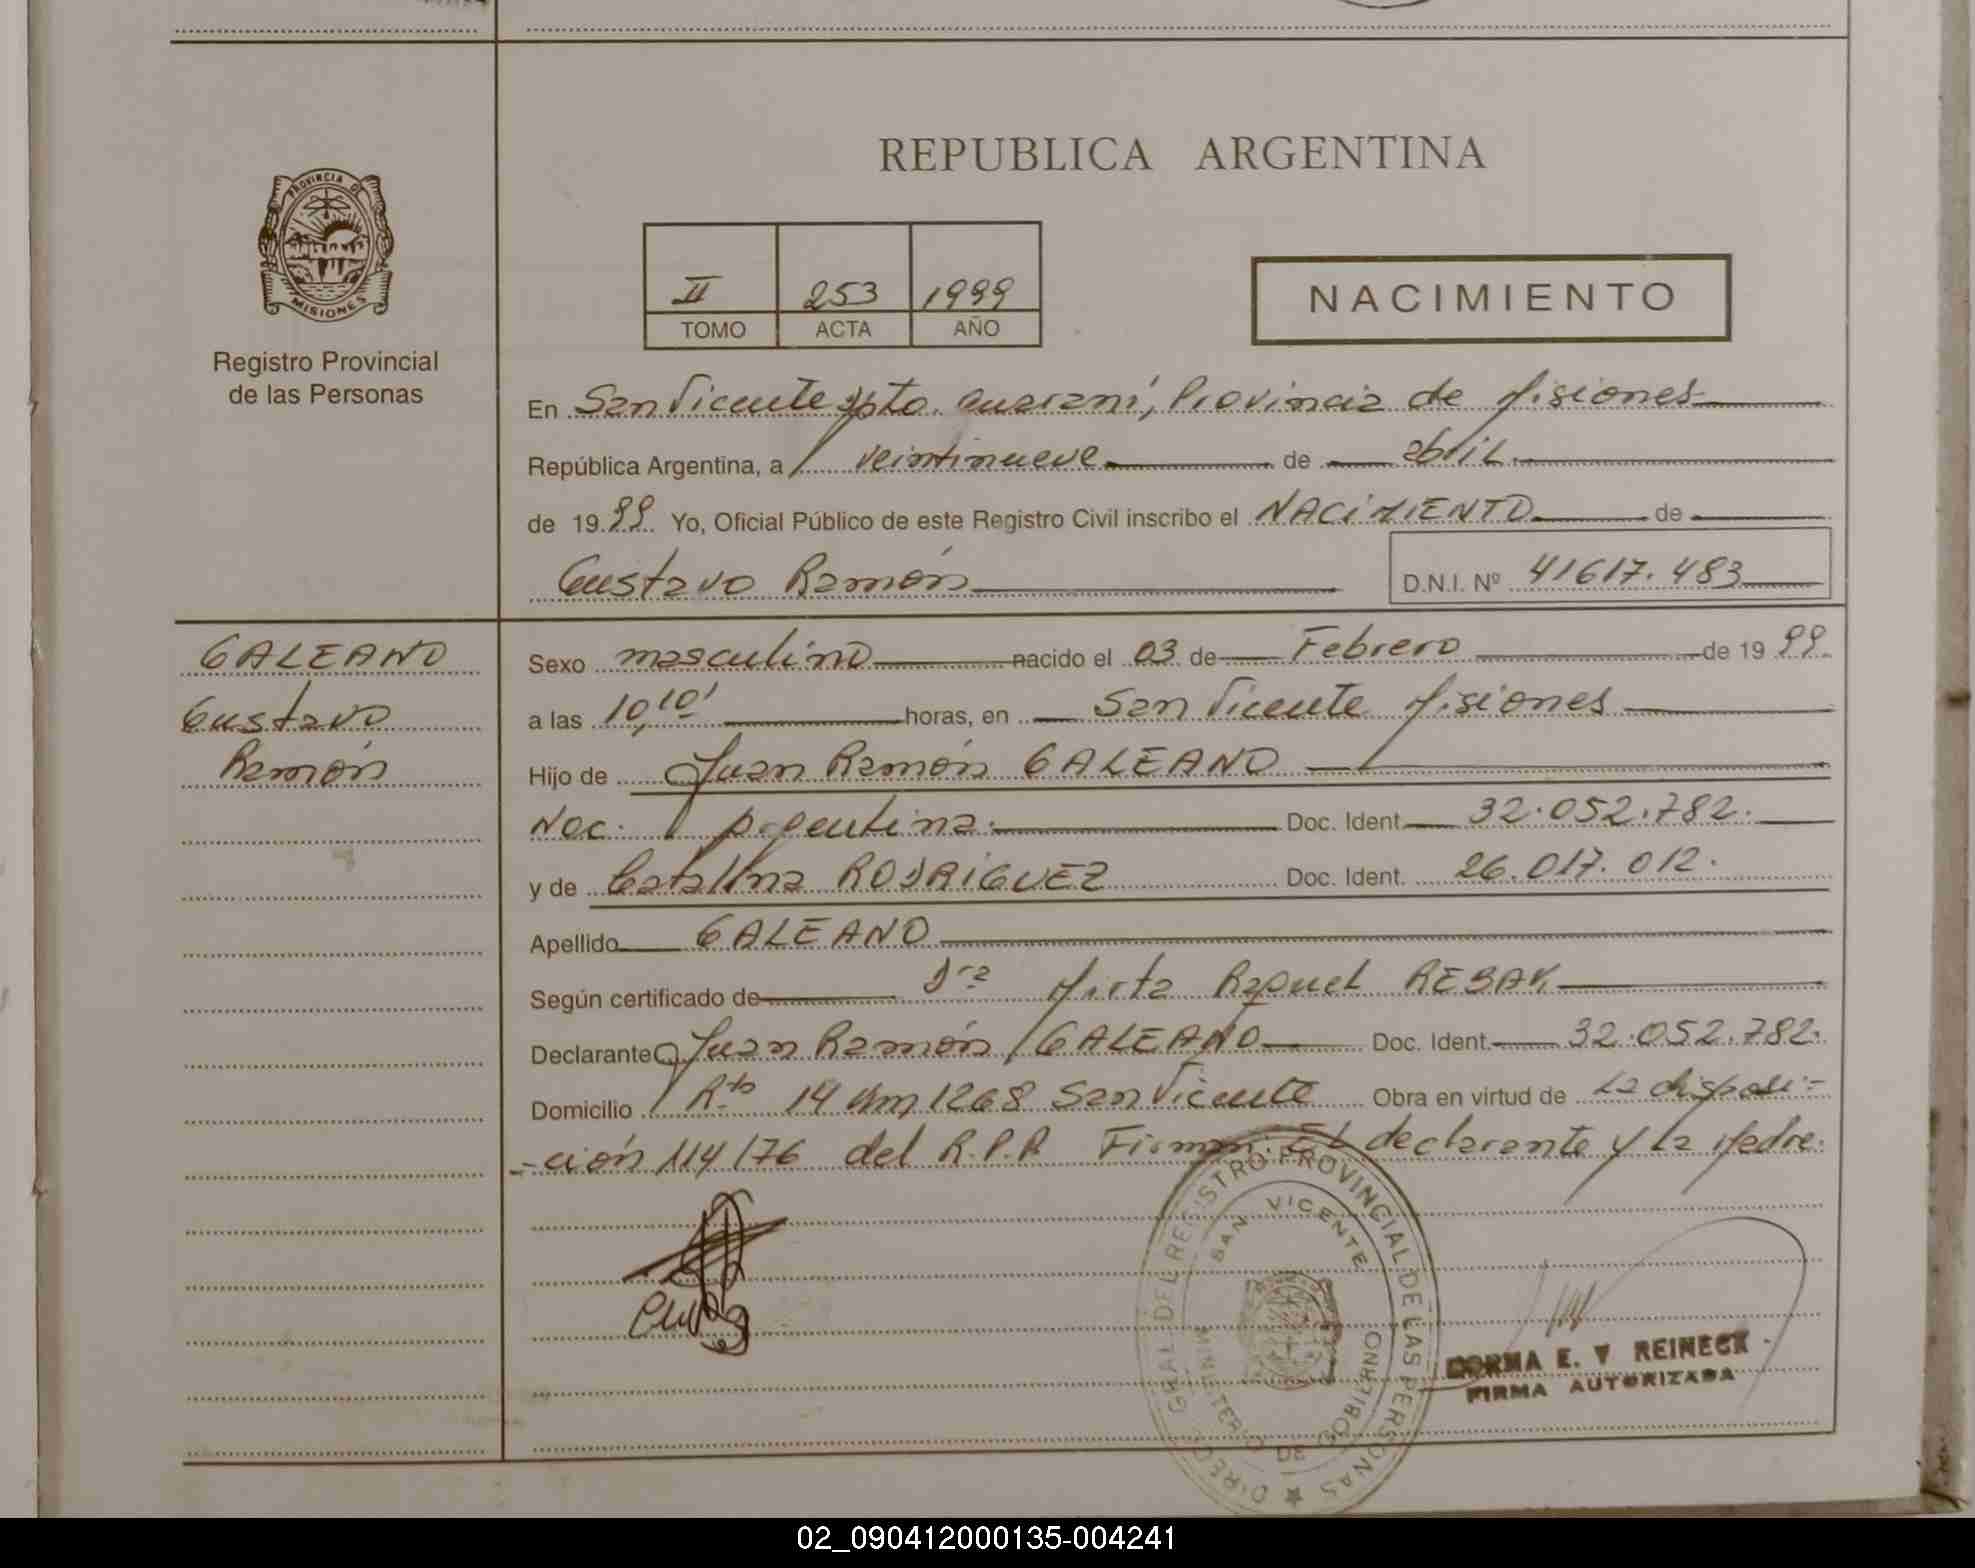 REPUBLICA ARGENTINA
PROVINCIA DE
MISIONES
Registro Provincial
de las Personas
II 253 1999
TOMO ACTA AÑO
NACIMIENTO
En San Vicente Dpto. Guaraní, Provincia de Misiones
República Argentina, a veintinueve de abril
de 1999 Yo, Oficial Público de este Registro Civil inscribo el NACIMIENTO de
Gustavo Ramón D.N.I. Nº 41617.483
GALEANO
Gustavo
Ramón
Sexo masculino nacido el 03 de Febrero de 1999.
a las 10,10' horas, en San Vicente Misiones
Hijo de Juan Ramón GALEANO
Nac. Argentina. Doc. Ident. 32.052.782.
y de Catalina RODRIGUEZ Doc. Ident. 26.017.012.
Apellido GALEANO
Según certificado de Dra Mirta Raquel REBAK
Declarante Juan Ramón GALEANO Doc. Ident. 32.052.782.
Domicilio Rta 14 Km 1268 San Vicente Obra en virtud de la disposi-
-ción 114/76 del R.P.P. Firman: El declarante y la Madre.
DIREC. GRAL. DEL REGISTRO PROVINCIAL DE LAS PERSONAS
SAN VICENTE
MINISTERIO DE GOBIERNO
E. V REINECK
FIRMA AUTORIZADA
02_090412000135-004241